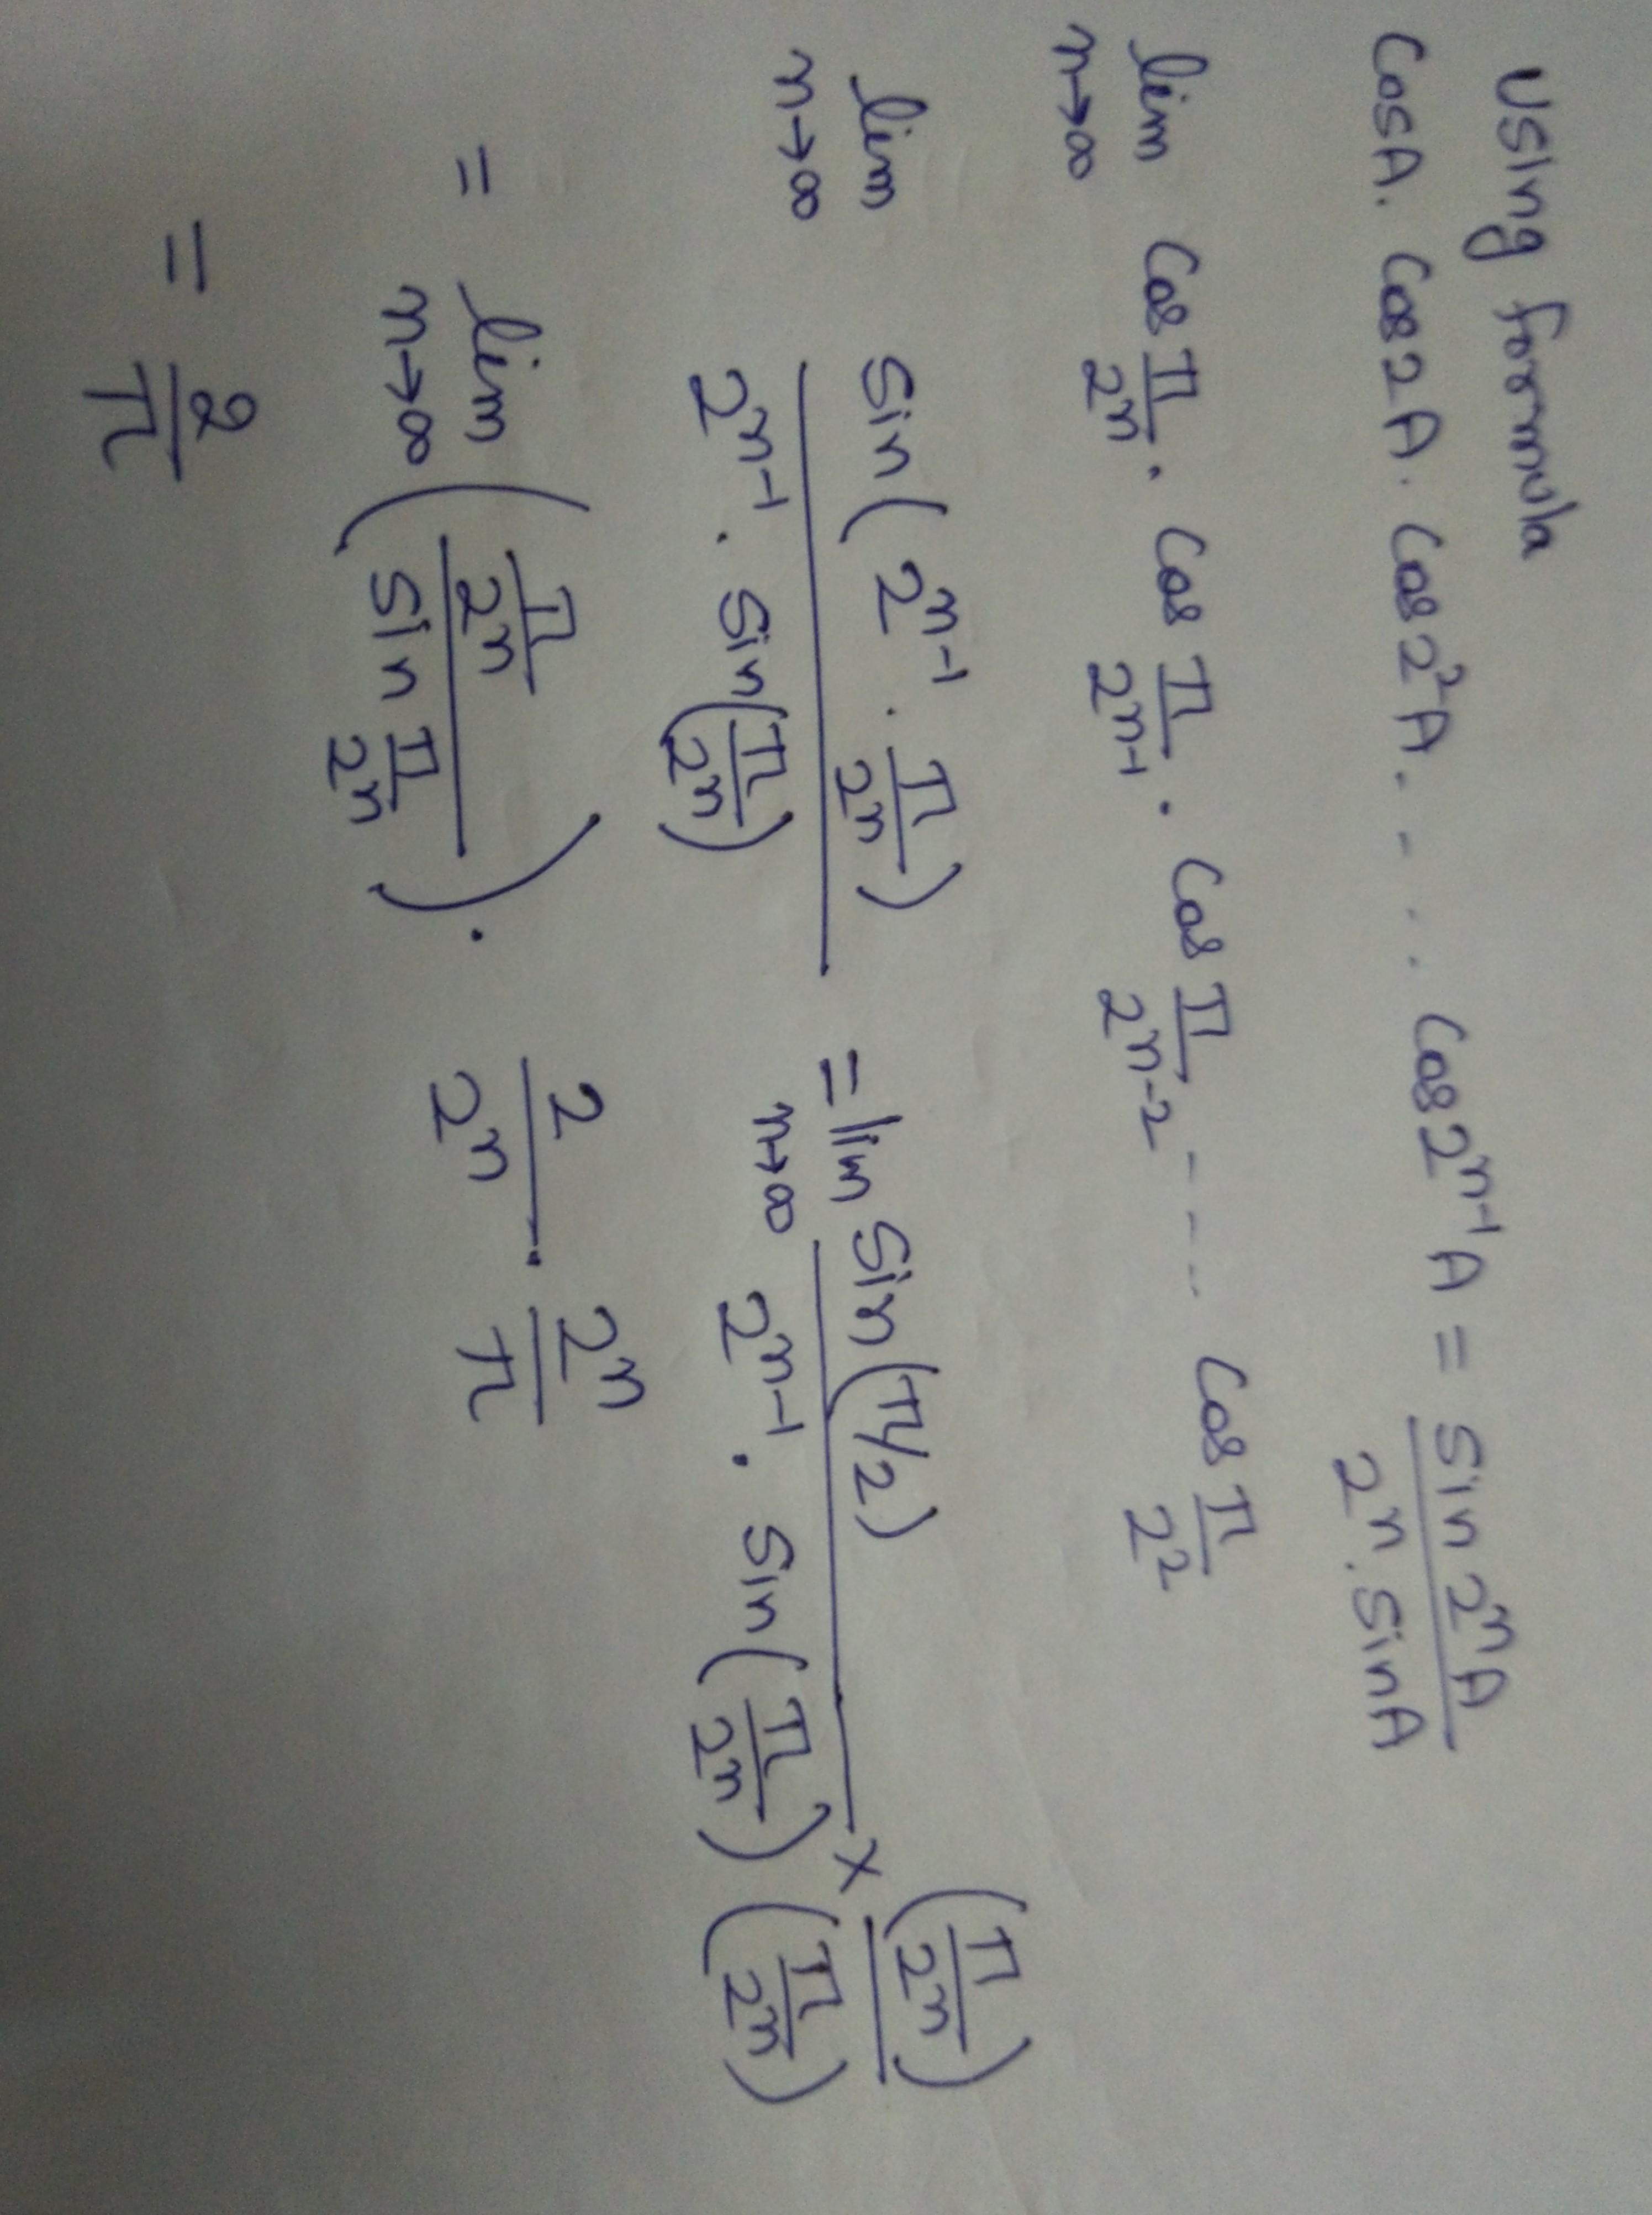 Using formula
CosA. Cos2A. Cos2²A. - - . . Cos2ⁿ⁻¹A = Sin2ⁿA / 2ⁿ. SinA
lim n→∞ Cos π/2ⁿ . Cos π/2ⁿ⁻¹ . Cos π/2ⁿ⁻² - - - - Cos π/2²
lim n→∞ Sin(2ⁿ⁻¹ . π/2ⁿ) / 2ⁿ⁻¹ . Sin(π/2ⁿ) = lim n→∞ Sin(π/2) / 2ⁿ⁻¹ . Sin(π/2ⁿ) × (π/2ⁿ) / (π/2ⁿ)
= lim n→∞ ( π/2ⁿ / Sin π/2ⁿ ) . 2/2ⁿ . 2ⁿ/π
= 2/π